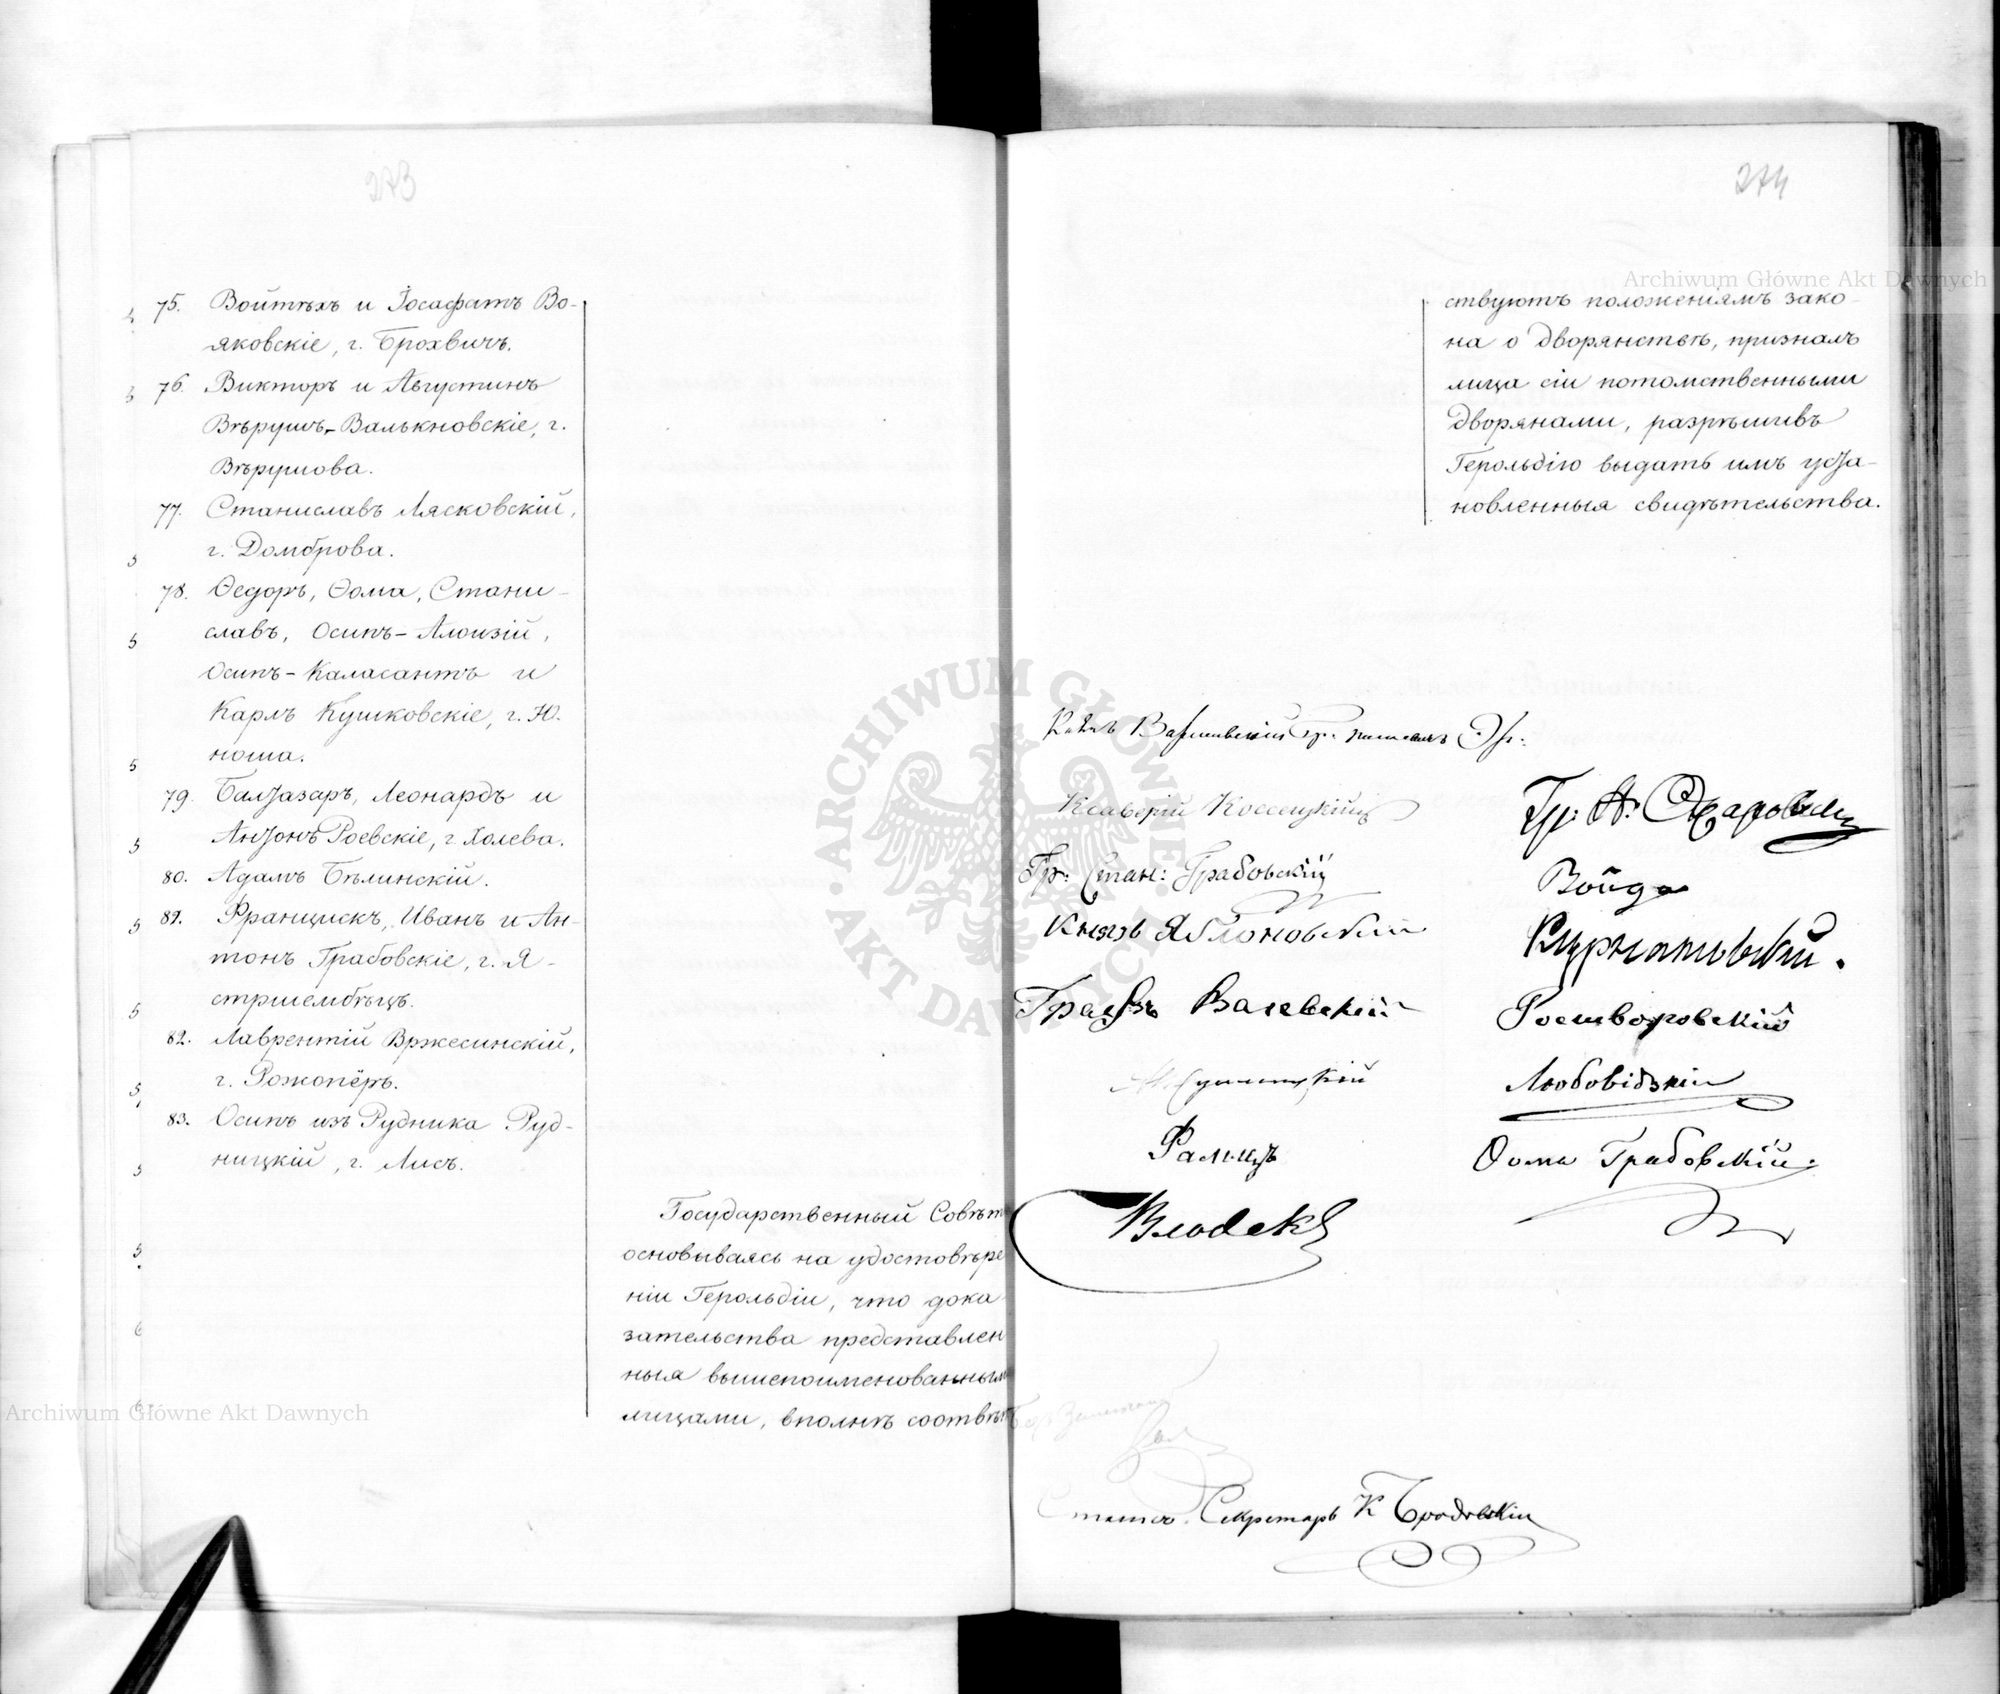 273
75. Войтѣхъ и Іосафатъ Во-
яковскіе, г. Брохвичъ.
76. Викторъ и Августинъ
Вѣрушъ-Валькновскіе, г.
Вѣрушова.
77. Станиславъ Лясковскій,
г. Домброва.
78. Ѳедоръ, Ѳома, Стани-
славъ, Осипъ-Алоизій,
Осипъ-Каласантъ и
Карлъ Кушковскіе, г. Ю-
ноша.
79. Балтазаръ, Леонардъ и
Антонъ Роевскіе, г. Холева.
80. Адамъ Бѣлинскій.
81. Францискъ, Иванъ и Ан-
тонъ Грабовскіе, г. Я-
стршембецъ.
82. Лаврентій Вржесинскій,
г. Рожопёръ.
83. Осипъ изъ Рудника Руд-
ницкій, г. Лисъ.
Государственный Совѣтъ
основываясь на удостовѣре
ніи Герольдіи, что дока
зательства представлен
ныя вышепоименованными
лицами, вполнѣ соотвѣт
274
ствуютъ положеніямъ зако-
на о дворянствѣ, призналъ
лица сіи потомственными
дворянами, разрѣшивъ
Герольдію выдать имъ уста-
новленныя свидѣтельства.
Князь Варшавскій Гр. Паскевичъ Эр:
Ксаверій Коссецкій
Гр: Стан: Грабовскій
Князь Яблоновскій
Графъ Валевскій
Влодекъ
Войда
Курнатовскій.
Ростворовскій
Любовідзкій
Ѳома Грабовскій.
Статсъ Секретарь К Бродовскій
ARCHIWUM GŁÓWNE AKT DAWNYCH
Archiwum Główne Akt Dawnych
Archiwum Główne Akt Dawnych